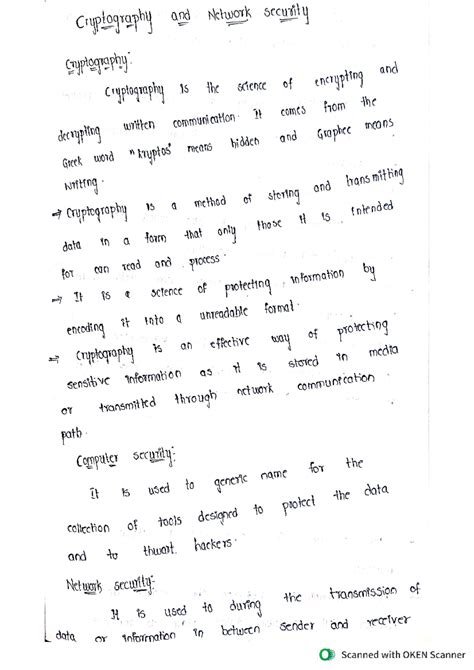 Cryptography and Network security
Cryptography:
Cryptography is the science of encrypting and
decrypting written communication. It comes from the
Greek word "kryptos" means hidden and Graphee means
writing.
⇒ Cryptography is a method of storing and transmitting
data in a form that only those it is intended
for can read and process.
⇒ It is a science of protecting information by
encoding it into a unreadable format.
⇒ Cryptography is an effective way of protecting
sensitive information as it is stored in media
or transmitted through network communication
path.
Computer security:-
It is used to generic name for the
collection of tools designed to protect the data
and to thwart hackers.
Network security:-
It is used to during the transmission of
data or information in between sender and receiver
Scanned with OKEN Scanner